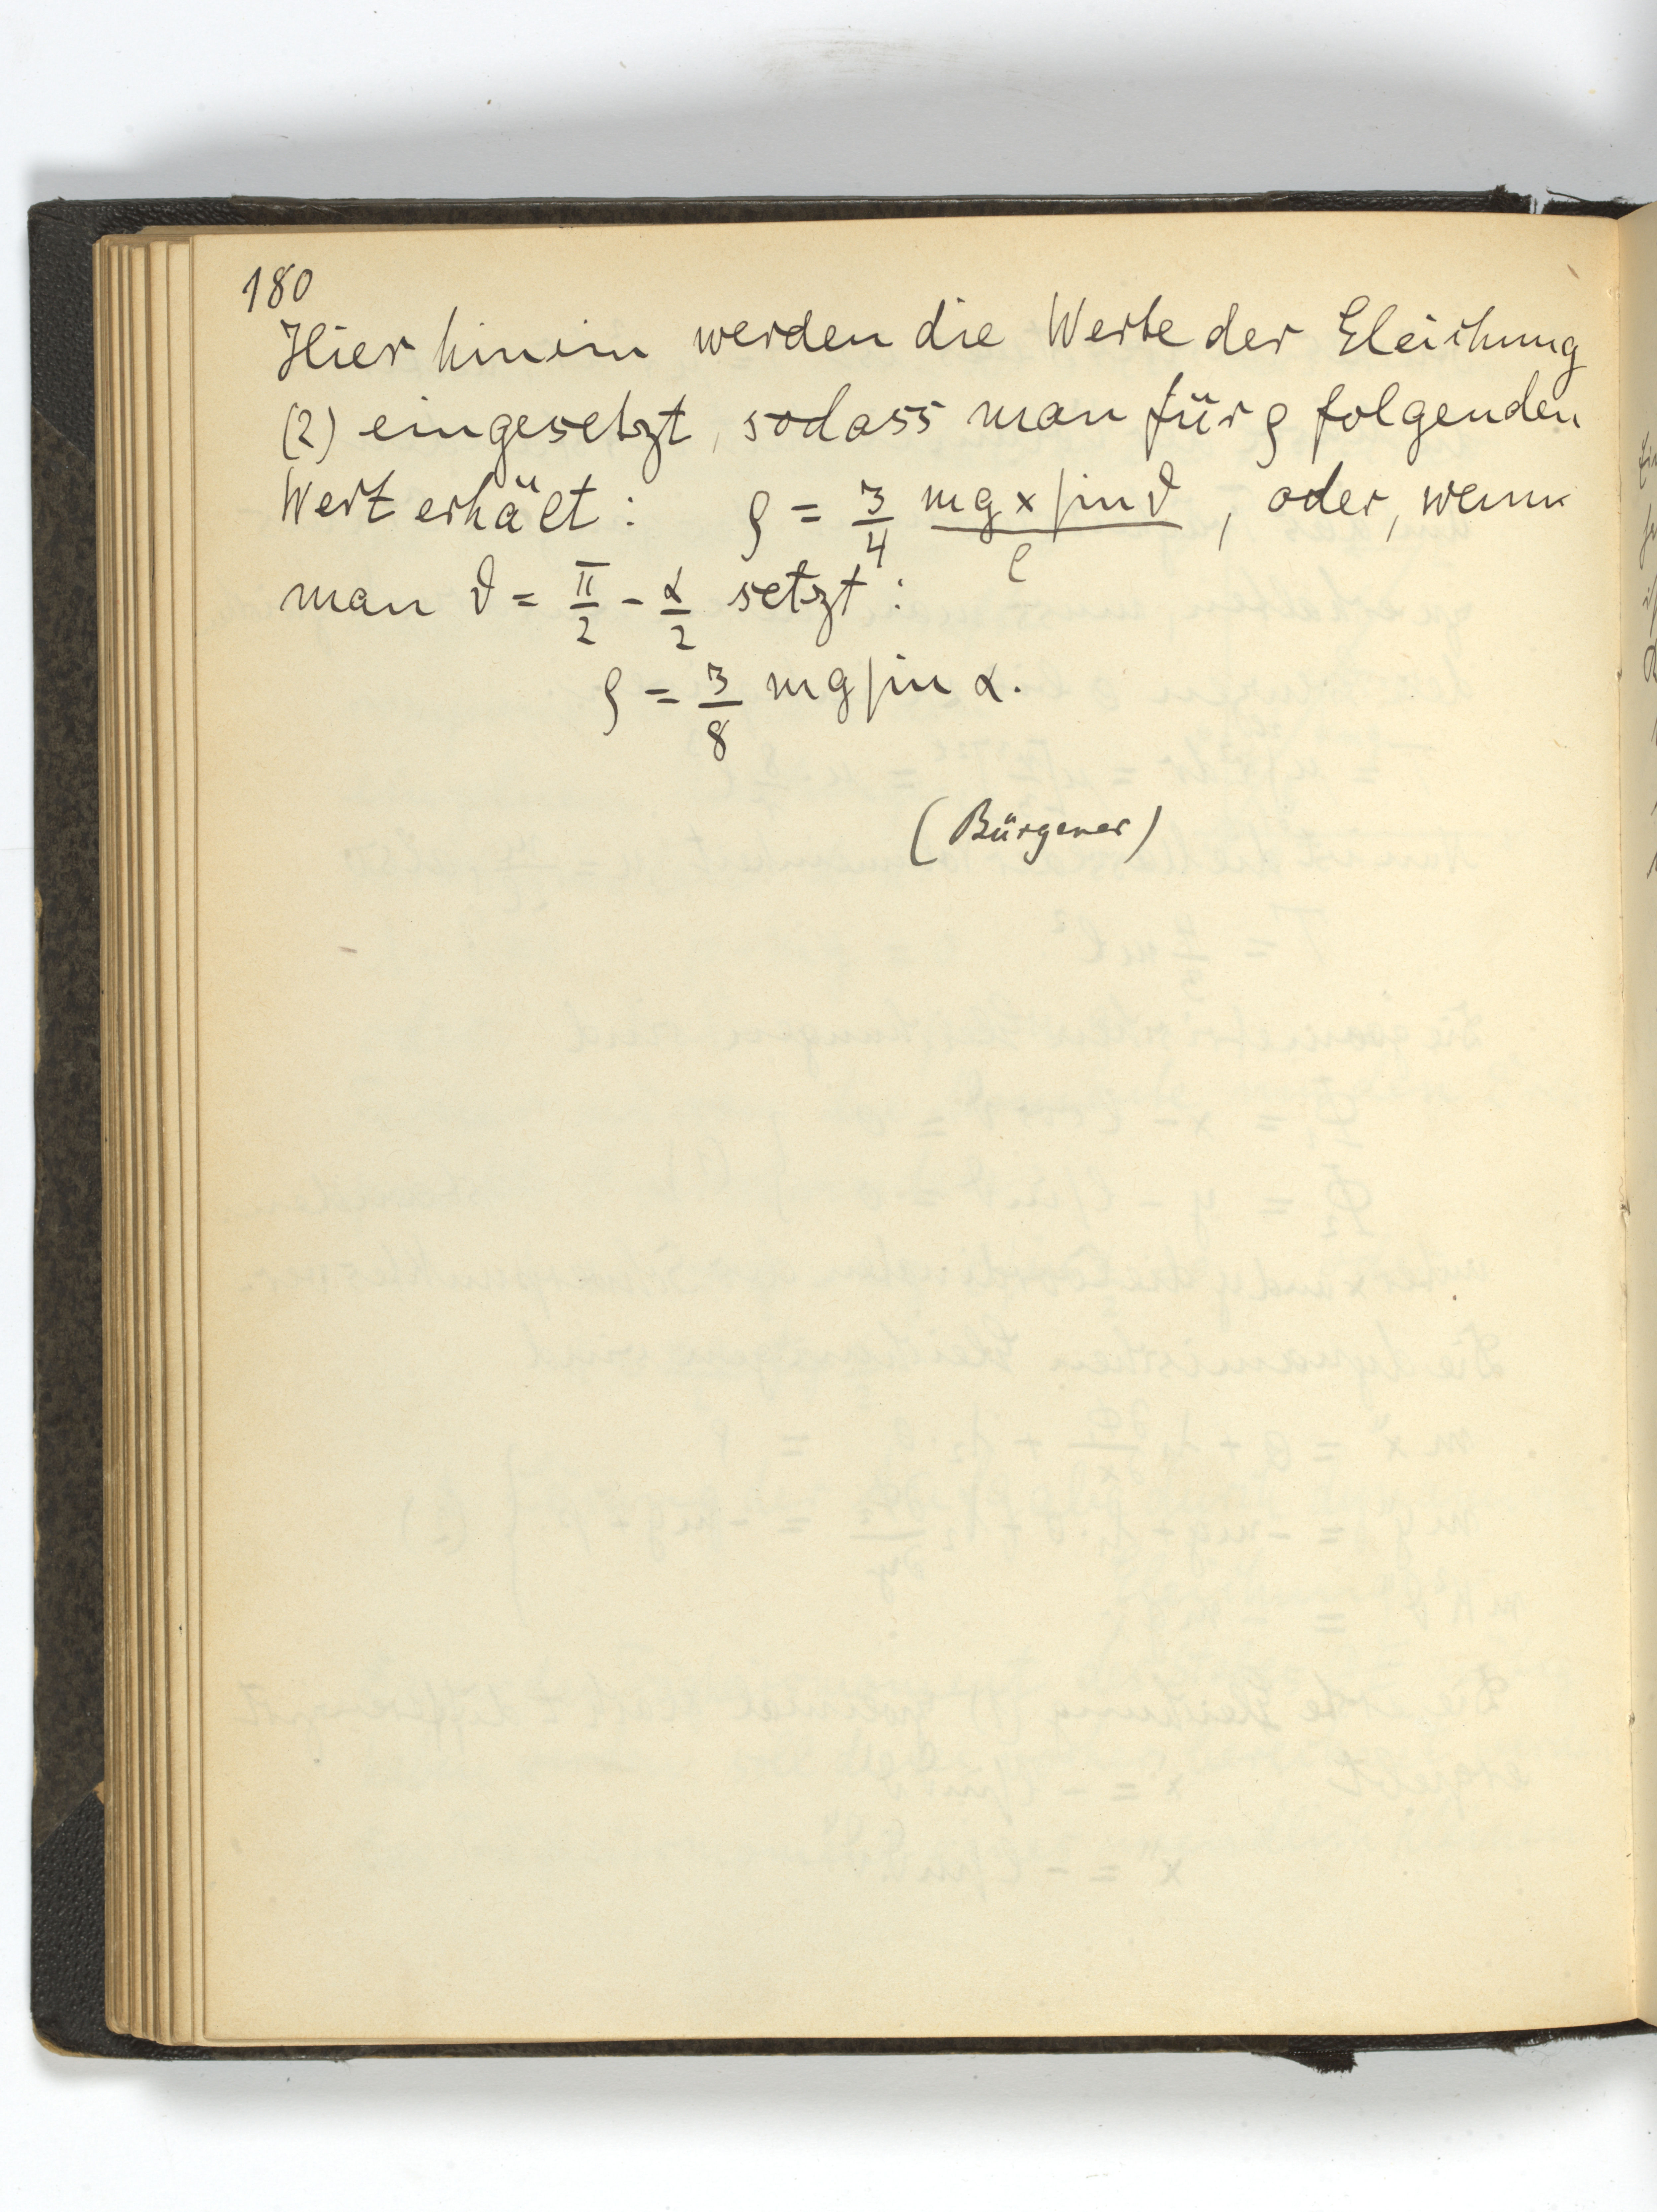 180
Hierhinein werden die Werte der Gleichung
(2) eingesetzt, sodass man für ϱ folgenden
Wert erhält: ϱ = 3/4 mg x sin ϑ / l, oder, wenn
man ϑ = π/2 - α/2 setzt:
ϱ = 3/8 mg sin α.
(Bürgener)